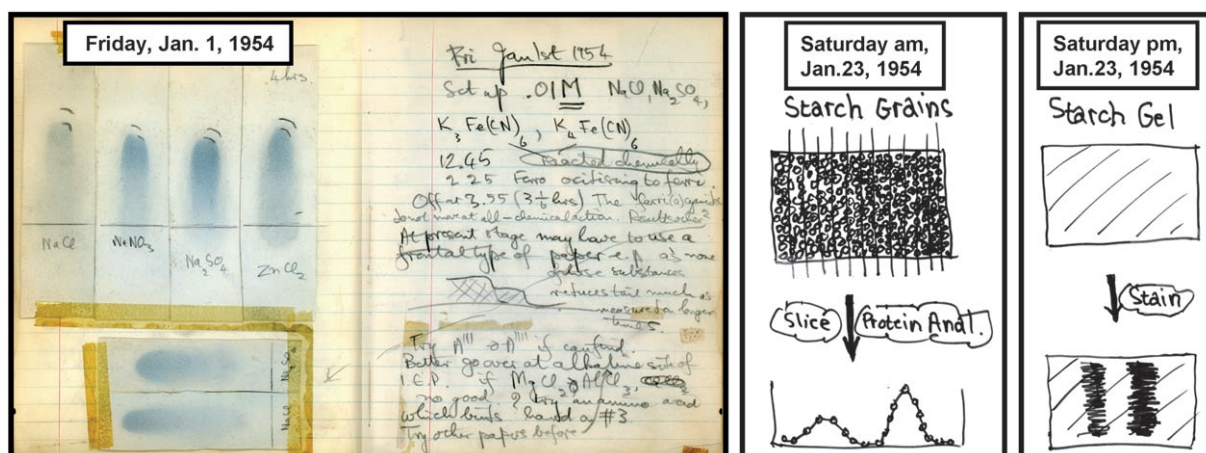 Friday, Jan. 1, 1954
4 hrs.
NaCl
NaNO3
Na2SO4
ZnCl2
Na2SO4
NaCl
Fri Jan 1st 1954
Set up .01M NaCl, Na2SO4,
K3Fe(CN)6, K4Fe(CN)6
12.45 Reacted chemically
2.25 Ferro oxitising to ferri.
Off at 3.55 (3 1/6 hrs) The
do not move at all - chemical action.
At present stage may have to use a
frontal type of paper e.p. as more
of these substances
reduces tail much as
measured on longer
times.
Try A''' or A'''' if confined.
Better go over at alkaline side of
I.E.P. if MgCl2 or AlCl3,
no good. ? try an amino acid
which binds #3
Try other papers before
Saturday am,
Jan.23, 1954
Starch Grains
Slice
Protein Anal.
Saturday pm,
Jan.23, 1954
Starch Gel
Stain